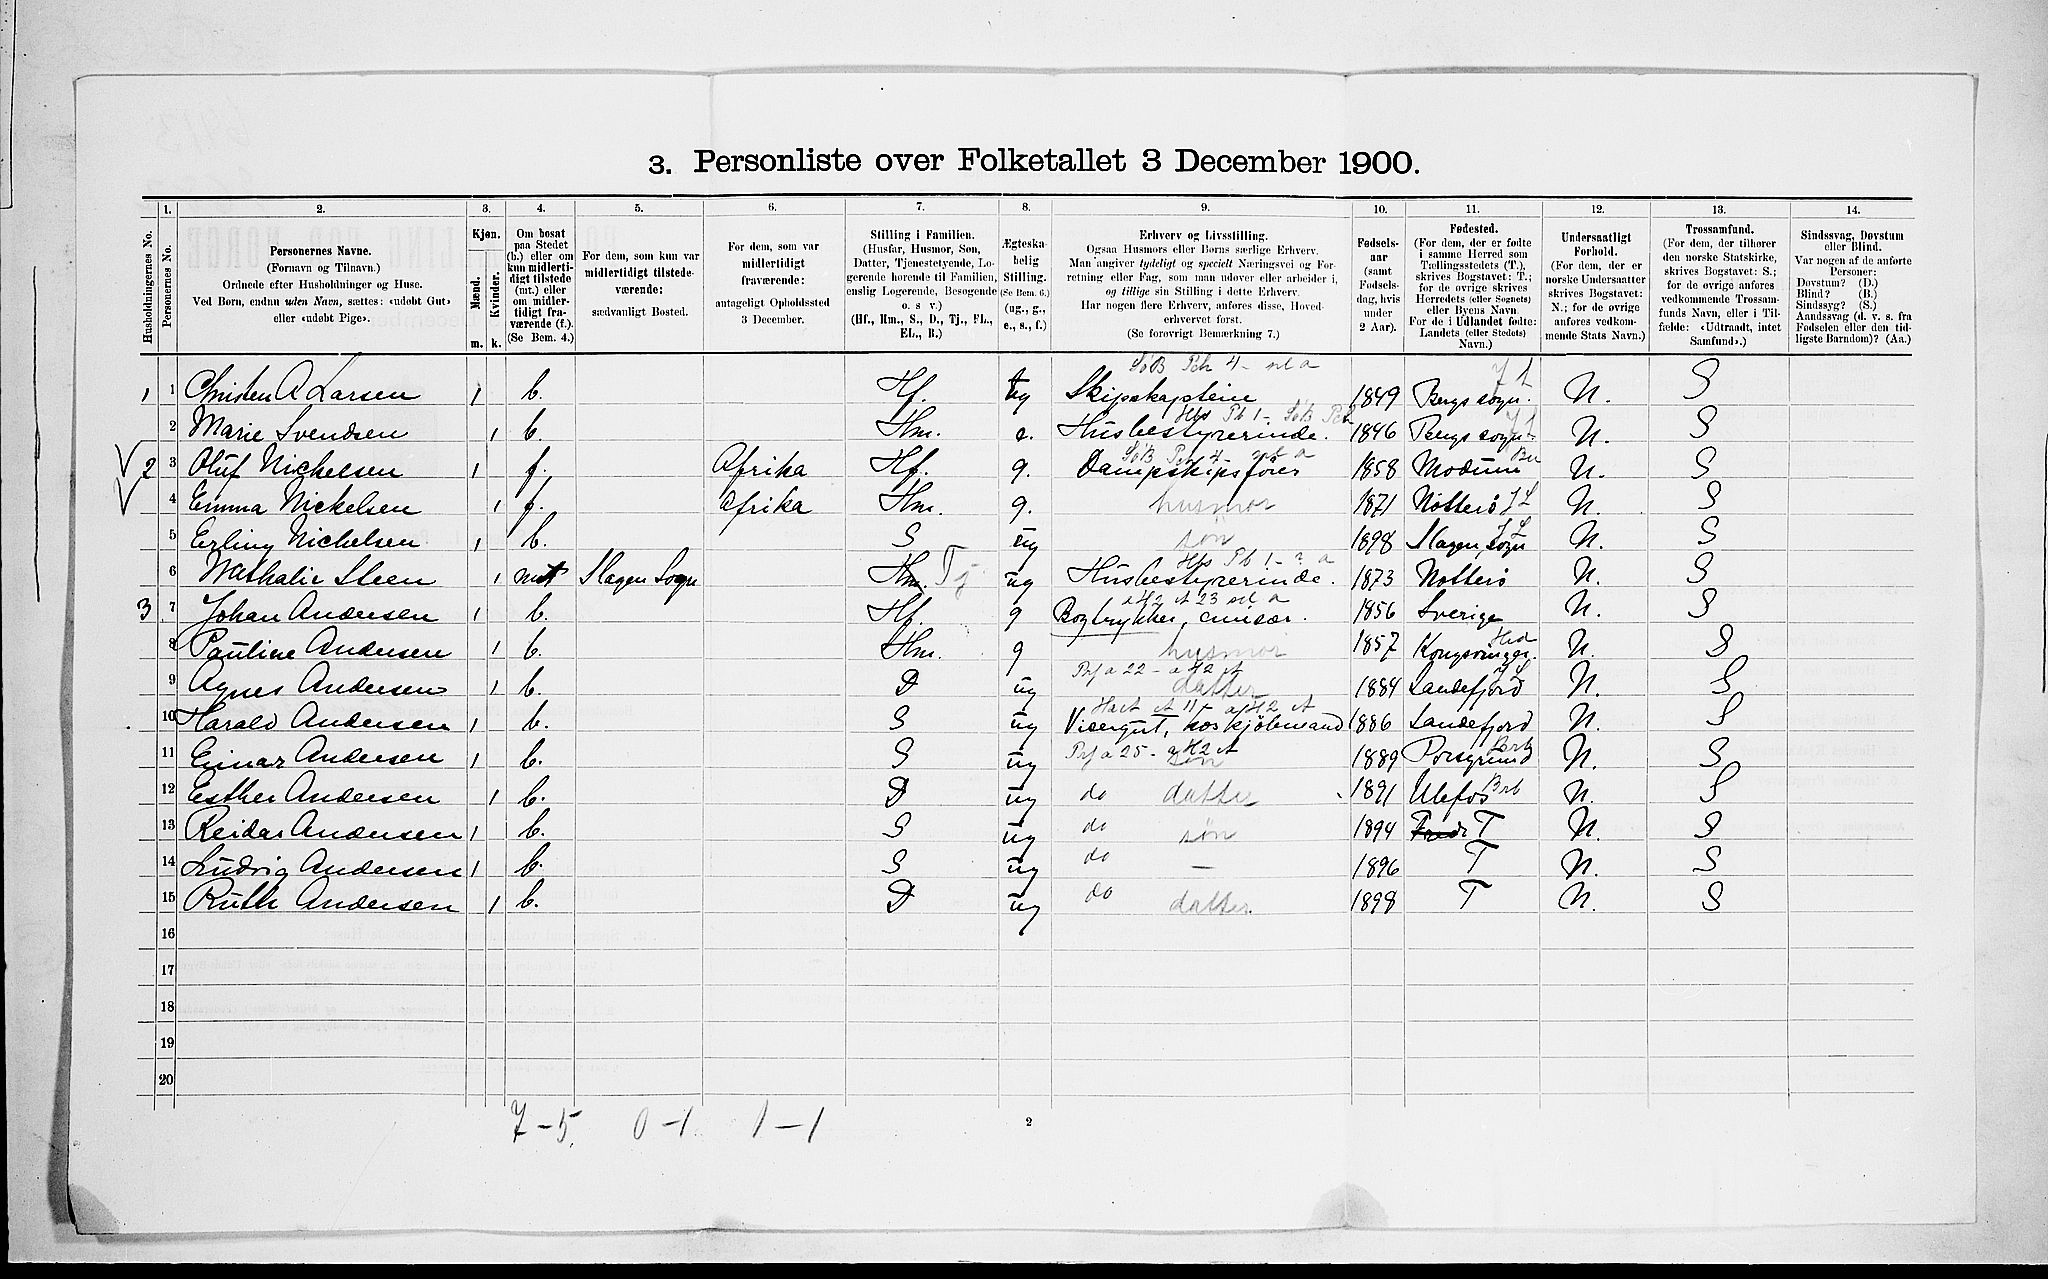 3. Personliste over Folketallet 3 December 1900.
1. 2. 3. 4. 5. 6. 7. 8. 9. 10. 11. 12. 13. 14.
Husholdningernes No.
Personernes No.
Personernes Navne.
(Fornavn og Tilnavn.)
Ordnede efter Husholdninger og Huse.
Ved Børn, endnu uden Navn, sættes: «udøbt Gut»
eller «udøbt Pige».
Kjøn.
Mænd.
Kvinder.
m. k.
Om bosat
paa Stedet
(b.) eller om
kun midlerti-
digt tilstede
(mt.) eller
om midler-
tidigt fra-
værende (f.).
(Se Bem. 4.)
For dem, som kun var
midlertidigt tilstede-
værende:
sædvanligt Bosted.
For dem, som var
midlertidigt
fraværende:
antageligt Opholdssted
3 December.
Stilling i Familien.
(Husfar, Husmor, Søn,
Datter, Tjenestetyende, Lo-
gerende hørende til Familien,
enslig Logerende, Besøgende
o. s. v.)
(Hf., Hm., S., D., Tj., FL.,
EL., B.)
Ægteska-
belig
Stilling.
(Se Bem. 6.)
(ug., g.,
e., s., f.)
Erhverv og Livsstilling.
Ogsaa Husmors eller Børns særlige Erhverv.
Man angiver tydeligt og specielt Næringsvei og For-
retning eller Fag, som man udøver eller arbeider i,
og tillige sin Stilling i dette Erhverv.
Har nogen flere Erhverv, anføres disse, Hoved-
erhvervet først.
(Se forøvrigt Bemærkning 7.)
Fødsels-
aar
(samt
Fødsels-
dag, hvis
under
2 Aar).
Fødested.
(For dem, der er fødte
i samme Herred som
Tællingsstedets (T.),
skrives Bogstavet: T.;
for de øvrige skrives
Herredets (eller Sognets)
eller Byens Navn.
For de i Udlandet fødte:
Landets (eller Stedets)
Navn.)
Undersaatligt
Forhold.
(For dem, der er
norske Undersaatter
skrives Bogstavet:
N.; for de øvrige
anføres vedkom-
mende Stats Navn.)
Trossamfund.
(For dem, der tilhører
den norske Statskirke,
skrives Bogstavet: S.;
for de øvrige anføres
vedkommende Trossam-
funds Navn, eller i Til-
fælde: «Udtraadt, intet
Samfund».)
Sindssvag, Døvstum
eller Blind.
Var nogen af de anførte
Personer:
Døvstum? (D.)
Blind? (B.)
Sindssyg? (S.)
Aandssvag (d. v. s. fra
Fødselen eller den tid-
ligste Barndom)? (Aa.)
1 1 Christen A Larsen 1 b. Hf. ug Skipskaptein 1849 Bergs sogn. N. S
2 Marie Svendsen 1 b. Hm. e. Husbestyrerinde. 1846 Bergs sogn N. S
2 3 Oluf Nickelsen 1 f. Afrika Hf. g. Dampskipsfører 1858 Modum Bu N. S
4 Emma Nickelsen 1 f. Afrika Hm. g. husmor 1871 Nøtterø JL N. S
5 Erling Nickelsen 1 b. S ug søn 1898 Slagen Sogn N. S
6 Nathalie Steen 1 mt Slagen Sogn Hm. Tj ug Husbestyrerinde. 1873 Nøtterø N. S
3 7 Johan Andersen 1 b. Hf. g Bogtrykker 1856 Sverige N. S
8 Pauline Andersen 1 b. Hm. g husmor 1857 Kongsvinger. Hed N. S
9 Agnes Andersen 1 b. D ug datter 1884 Sandefjord JL N. S
10 Harald Andersen 1 b. S ug Visergut, hos kjøbmand 1886 Sandefjord N. S
11 Einar Andersen 1 b. S ug søn 1889 Porsgrund N. S
12 Esther Andersen 1 b. D ug do datter 1891 Ulefos Brb N. S
13 Reidar Andersen 1 b. S ug do søn 1894 T N. S
14 Ludvig Andersen 1 b. S ug do — 1896 T N. S
15 Ruth Andersen 1 b. D ug do datter. 1898 T N. S
16
17
18
19
20
7-5. 0-1. 1-1
2